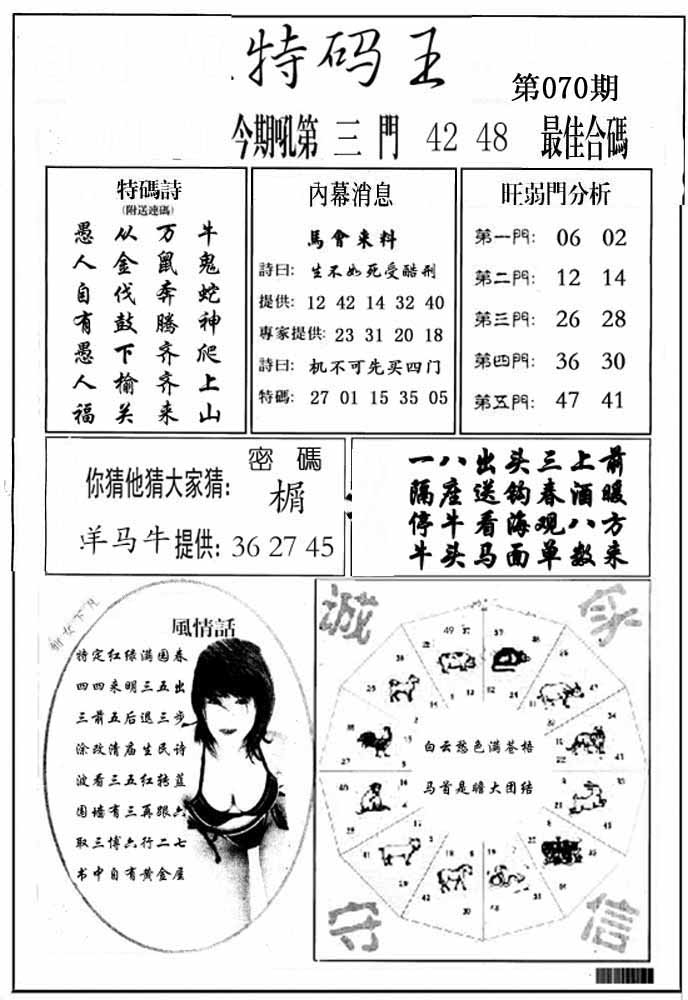 特码王
第070期
今期吼第 三 門 42 48 最佳合碼
特碼詩
(附送連碼)
愚 从 万 牛
人 金 鼠 鬼
自 伐 奔 蛇
有 鼓 騰 神
愚 下 齐 爬
人 榆 齐 上
福 关 来 山
內幕消息
馬會来料
詩曰: 生不如死受酷刑
提供: 12 42 14 32 40
專家提供: 23 31 20 18
詩曰: 机不可先买四门
特碼: 27 01 15 35 05
旺弱門分析
第一門: 06 02
第二門: 12 14
第三門: 26 28
第四門: 36 30
第五門: 47 41
密碼
你猜他猜大家猜: 榍
羊马牛提供: 36 27 45
一八出头三上前
隔座送钩春酒暖
停牛看海观八方
牛头马面单数来
風情話
特定红绿满园春
四四来明三五出
三前五后退三步
涂改清庙生民诗
波看三五红转蓝
围墙有三再跟六
取三博六行二七
书中自有黄金屋
诚
家
白云愁色满苍梧
马首是瞻大团结
守
信